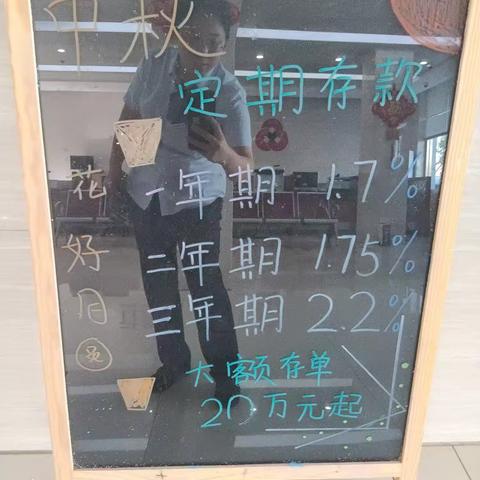 中秋
花好月圆
定期存款
一年期 1.7%
二年期 1.75%
三年期 2.2%
大额存单
20万元起